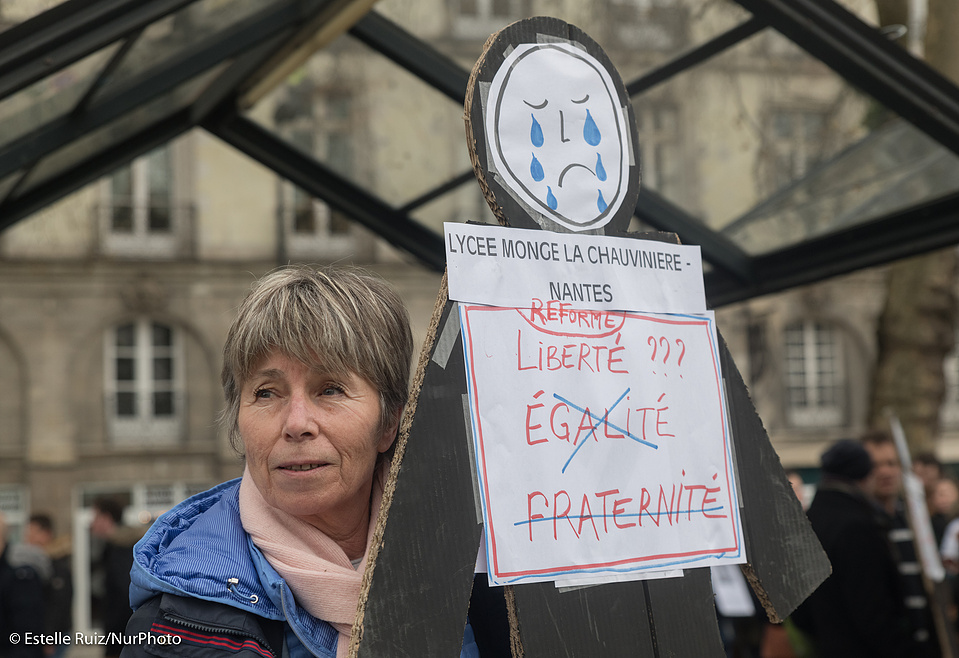 LYCEE MONGE LA CHAUVINIERE -
NANTES
REFORME
LIBERTÉ ???
ÉGALITÉ
FRATERNITÉ
© Estelle Ruiz/NurPhoto